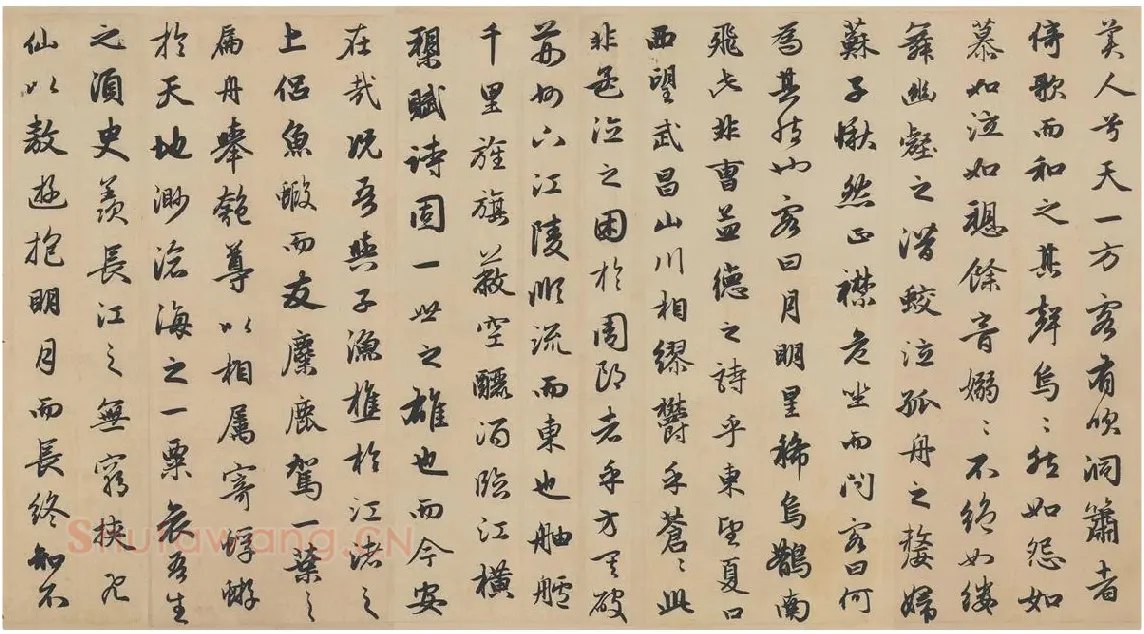 美人兮天一方客有吹洞簫者
倚歌而和之其聲烏〻然如怨如
慕如泣如愬餘音嫋〻不絕如縷
舞幽壑之潛蛟泣孤舟之嫠婦
蘇子愀然正襟危坐而問客曰何
為其然也客曰月明星稀烏鵲南
飛此非曹孟德之詩乎東望夏口
西望武昌山川相繆鬱乎蒼〻此
非孟德之困於周郎者乎方其破
荊州下江陵順流而東也舳艫
千里旌旗蔽空釃酒臨江橫
槊賦詩固一世之雄也而今安
在哉況吾與子漁樵於江渚之
上侶魚蝦而友麋鹿駕一葉之
扁舟舉匏尊以相屬寄蜉蝣
於天地渺滄海之一粟哀吾生
之須臾羨長江之無窮挾飛
仙以遨遊抱明月而長終知不
Shufawang.cn